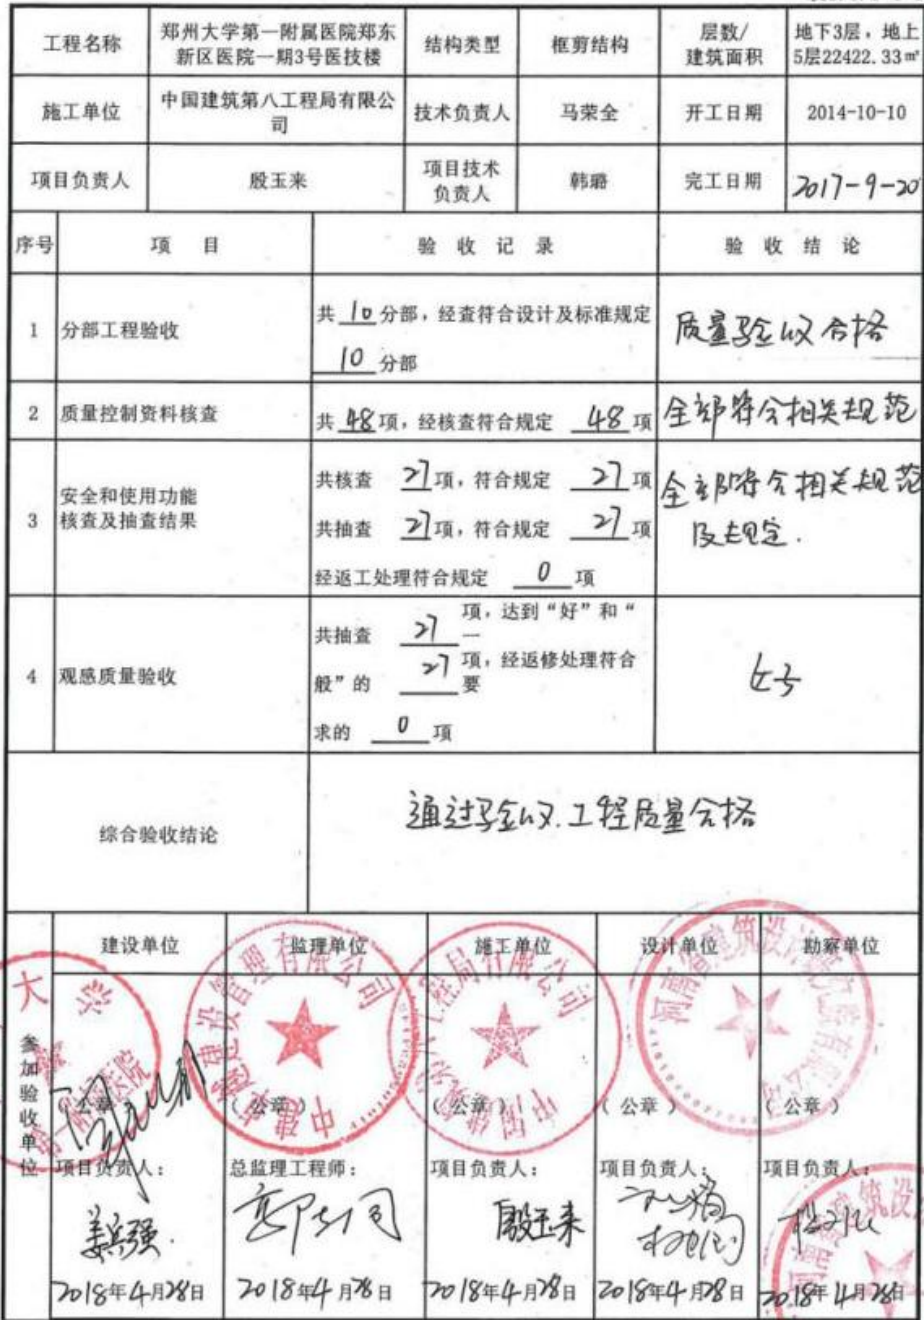 工程名称 郑州大学第一附属医院郑东新区医院一期3号医技楼 结构类型 框剪结构 层数/建筑面积 地下3层，地上5层22422.33㎡
施工单位 中国建筑第八工程局有限公司 技术负责人 马荣全 开工日期 2014-10-10
项目负责人 殷玉来 项目技术负责人 韩璐 完工日期 2017-9-20
序号 项 目 验 收 记 录 验 收 结 论
1 分部工程验收 共 10 分部，经查符合设计及标准规定 质量验收合格
10 分部
2 质量控制资料核查 共 48 项，经核查符合规定 48 项 全部符合相关规范
3 安全和使用功能核查及抽查结果 共核查 27 项，符合规定 27 项 全部符合相关规范
共抽查 27 项，符合规定 27 项 及规定.
经返工处理符合规定 0 项
4 观感质量验收 共抽查 27 项，达到“好”和“一 好
般”的 27 项，经返修处理符合要
求的 0 项
综合验收结论 通过验收.工程质量合格
参加验收单位
建设单位 监理单位 施工单位 设计单位 勘察单位
（公章） （公章） （公章） （公章） （公章）
项目负责人： 总监理工程师： 项目负责人： 项目负责人： 项目负责人：
姜兵强. 殷玉来
2018年4月28日 2018年4月28日 2018年4月28日 2018年4月28日 2018年4月28日